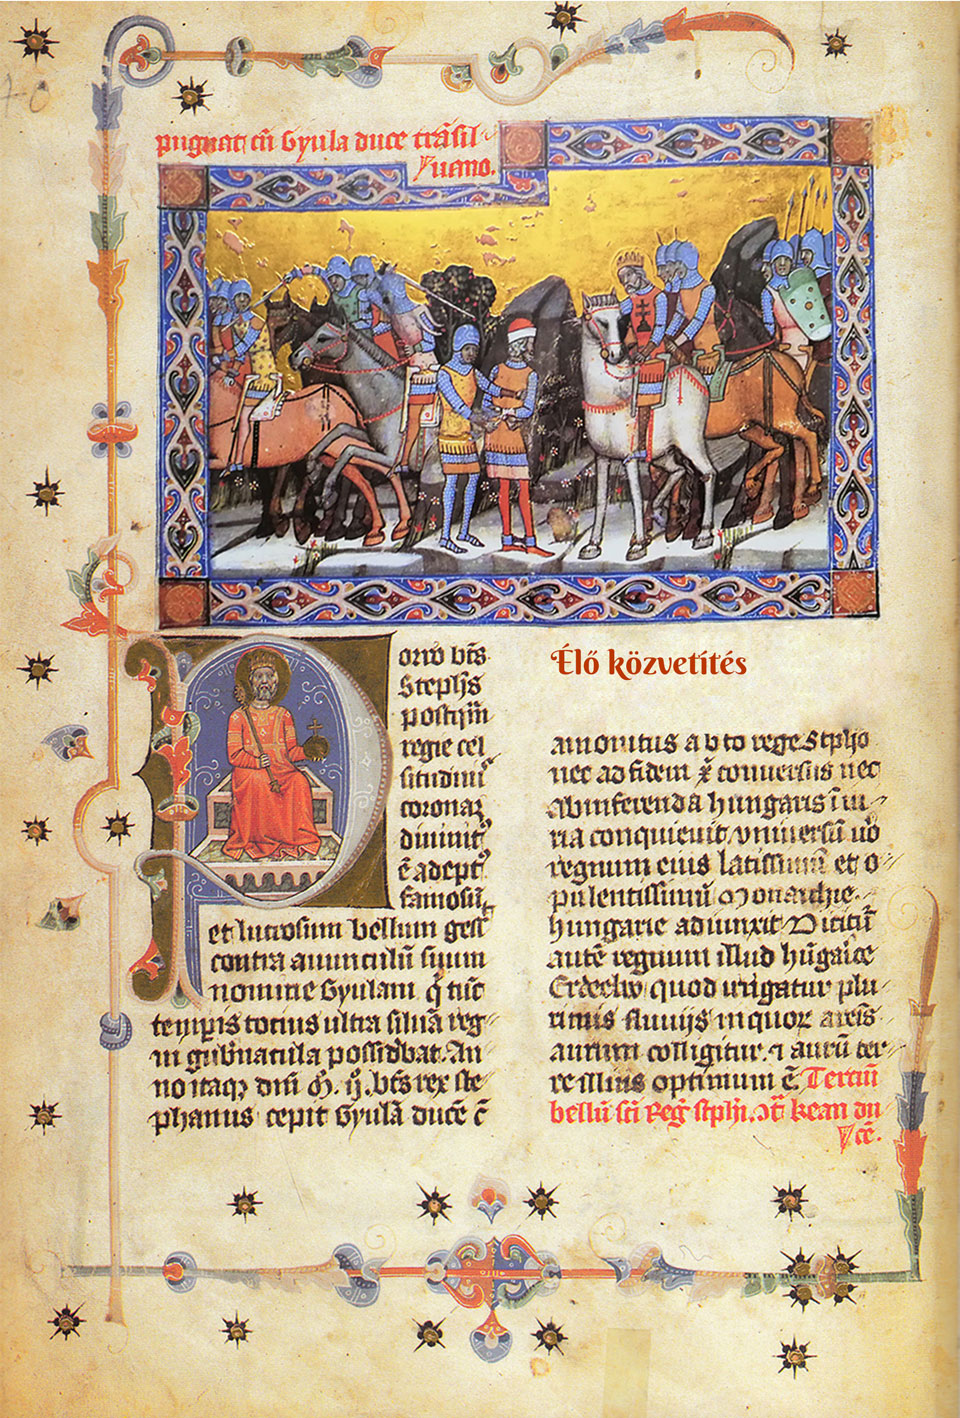 pugnat cū Gyula duce trāsil
uano.
Porro bt̄s
Steph̄s
postq̄m
regie cel
situdinis
coronaꝫ
diuinitꝰ
ē adeptꝰ
famosū
et lucrosum bellum gess
contra auunculū suum
nomine Gyulam q̄ tūc
temꝑis totius ultra siluā reg
ni gub̄nacula possid̄bat. An
no itaqꝫ dn̄i M̄. ij. bt̄s rex ste
phanus cepit Gyulā ducē c̄
Élő közvetítés
amonitus a b̄to rege Stpho
nec ad fidem x̄ conuersus nec
ab inferenda hungaris īiu
ria conquieuit, vniuersū uō
regnum eius latissimū et o
pulentissimū Monarchie
hungarie adiunxit. Dicitur̄
autē regnum illud hūgarice
Erdeelw quod irrigatur plu
rimis fluuijs in quoꝝ arēis
aurum colligitur. ⁊ aurū ter
re illius optimum ē. Tertiū
bellū sc̄i Reḡ stphi. ꝯt̄ kean du
cē.